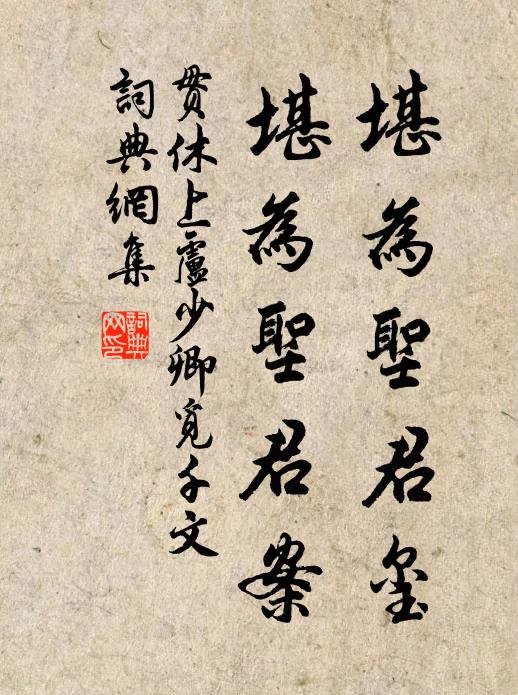 堪為聖君璽
堪為聖君案
貫休上盧少卿覓千文
詞典網集
詞典网印